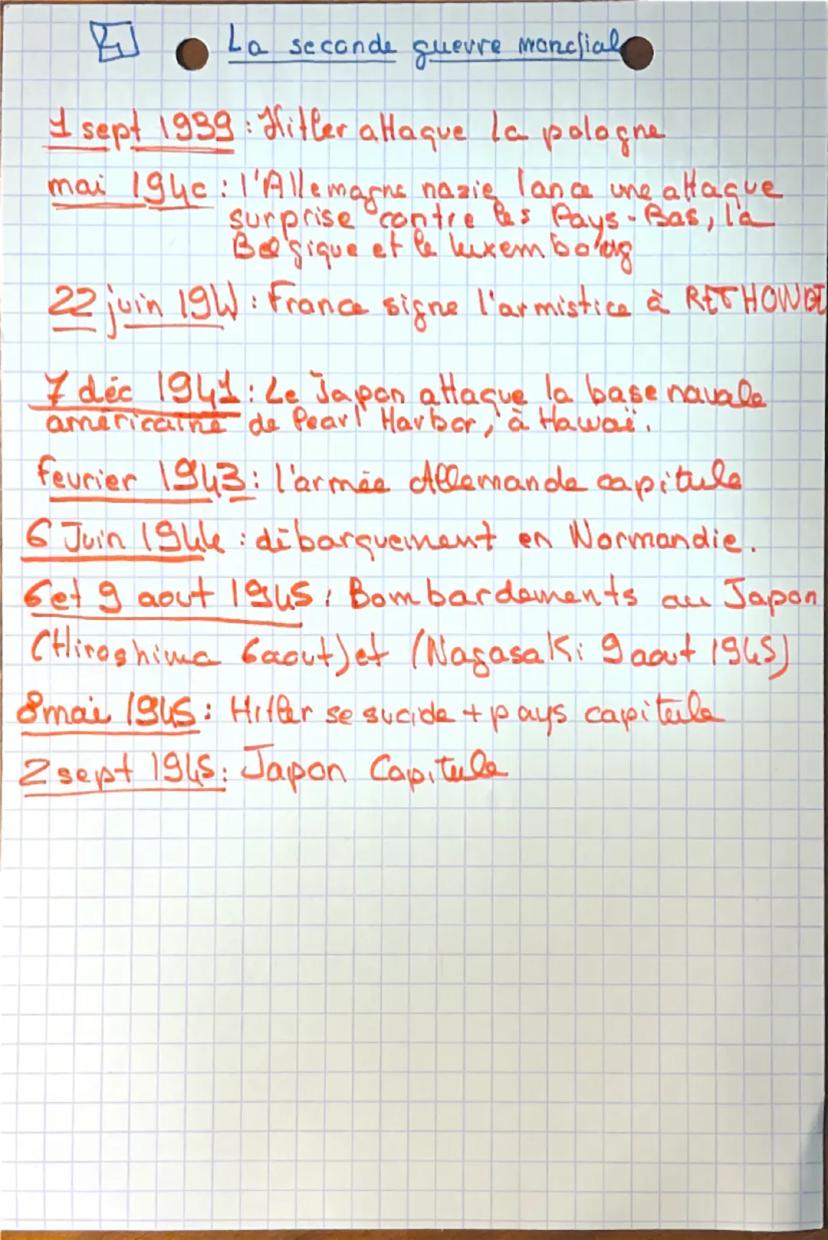 La seconde guerre mondial
1 sept 1939 : Hitler attaque la pologne
mai 1940 : l'Allemagne nazie lance une attaque
surprise contre les Pays-Bas, la
Belgique et le luxembourg
22 juin 1940 : France signe l'armistice à RETHONDE
7 déc 1941 : Le Japon attaque la base navale
américaine de Pearl Harbor, à Hawaï.
fevrier 1943 : l'armée Allemande capitule
6 Juin 1944 : débarquement en Normandie.
6 et 9 aout 1945 : Bombardements au Japon
(Hiroshima 6 aout) et (Nagasaki 9 aout 1945)
8 mai 1945 : Hitler se sucide + pays capitule
2 sept 1945 : Japon Capitule